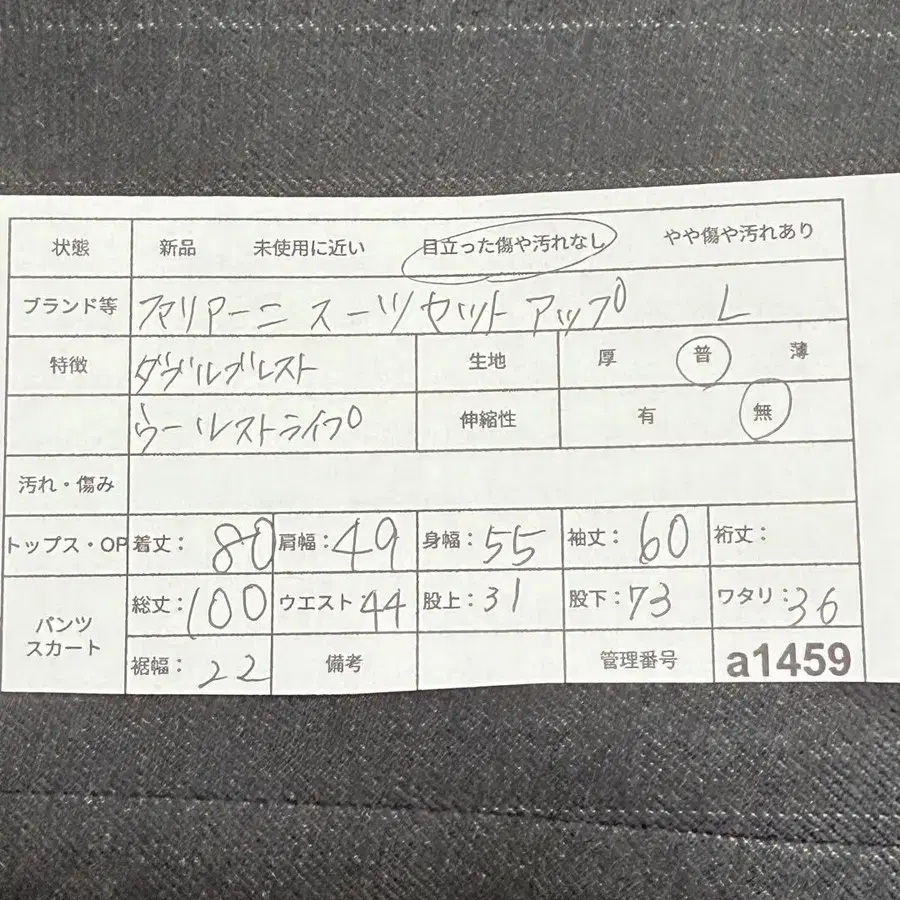 状態 新品 未使用に近い 目立った傷や汚れなし やや傷や汚れあり
ブランド等 ファリアーニ スーツ セットアップ L
特徴 ダブルブレスト 生地 厚 普 薄
ウールストライプ 伸縮性 有 無
汚れ・傷み
トップス・OP 着丈: 80 肩幅: 49 身幅: 55 袖丈: 60 裄丈:
パンツ スカート 総丈: 100 ウエスト: 44 股上: 31 股下: 73 ワタリ: 36
裾幅: 22 備考 管理番号 a1459